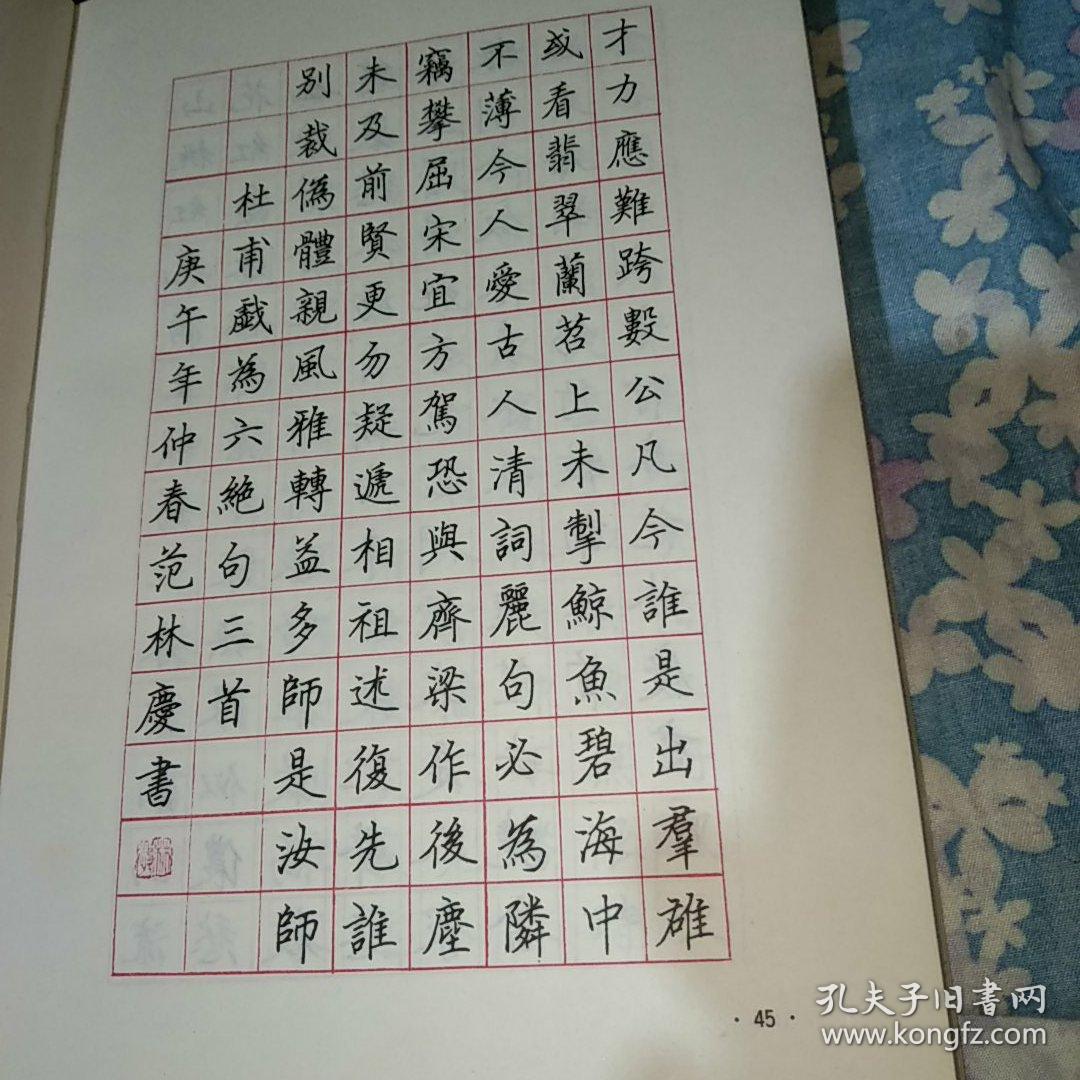 才力應難跨數公凡今誰是出羣雄
或看翡翠蘭苕上未掣鯨魚碧海中
不薄今人愛古人清詞麗句必為隣
竊攀屈宋宜方駕恐與齊梁作後塵
未及前賢更勿疑遞相祖述復先誰
別裁偽體親風雅轉益多師是汝師
杜甫戲為六絕句三首
庚午年仲春范林慶書
· 45 ·
孔夫子旧书网
www.kongfz.com